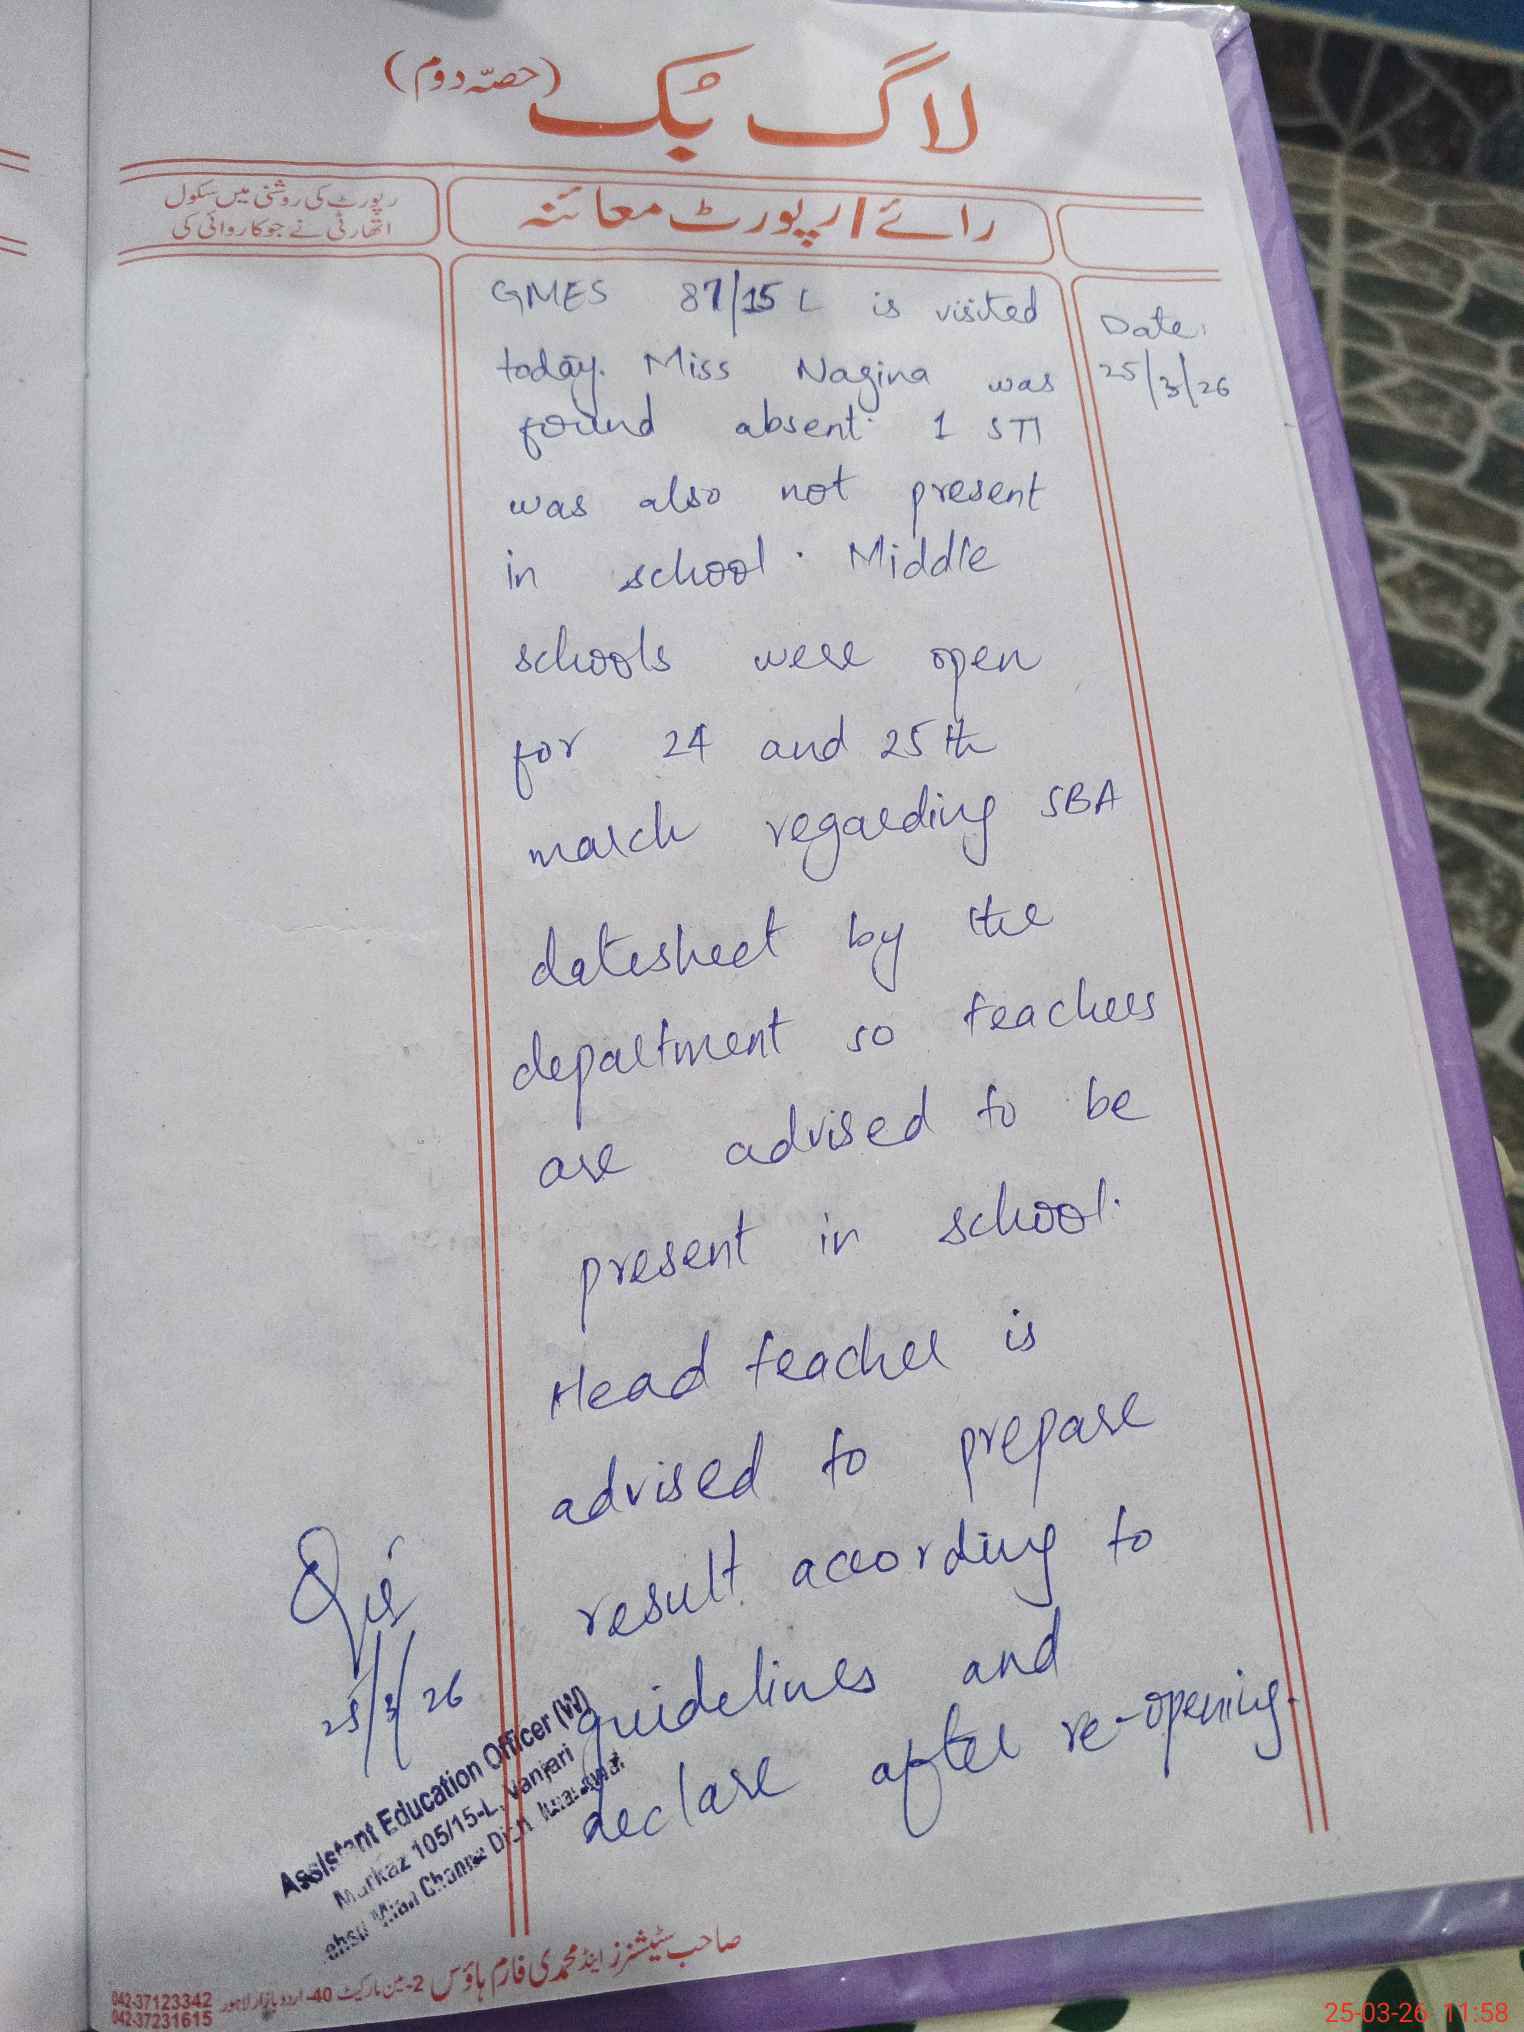 لاگ بُک (حصّہ دوم)
رپورٹ کی روشنی میں سکول
اتھارٹی نے جو کاروائی کی
رائے/رپورٹ معائنہ
GMES 87/15 L is visited
today. Miss Nagina was
found absent. 1 STI
was also not present
in school. Middle
schools were open
for 24 and 25th
march regarding SBA
datesheet by the
department so teachers
are advised to be
present in school.
Head teacher is
advised to prepare
result according to
guidelines and
declare after re-opening.
Date:
25/3/26
25/3/26
Assistant Education Officer (W)
Markaz 105/15-L, Vanjari
Mian Channu
صاحب سٹیشنرز اینڈ محمدی فارم ہاؤس 2-مین مارکیٹ 40-اردو بازار لاہور
042-37123342
042-37231615
25-03-26 11:58